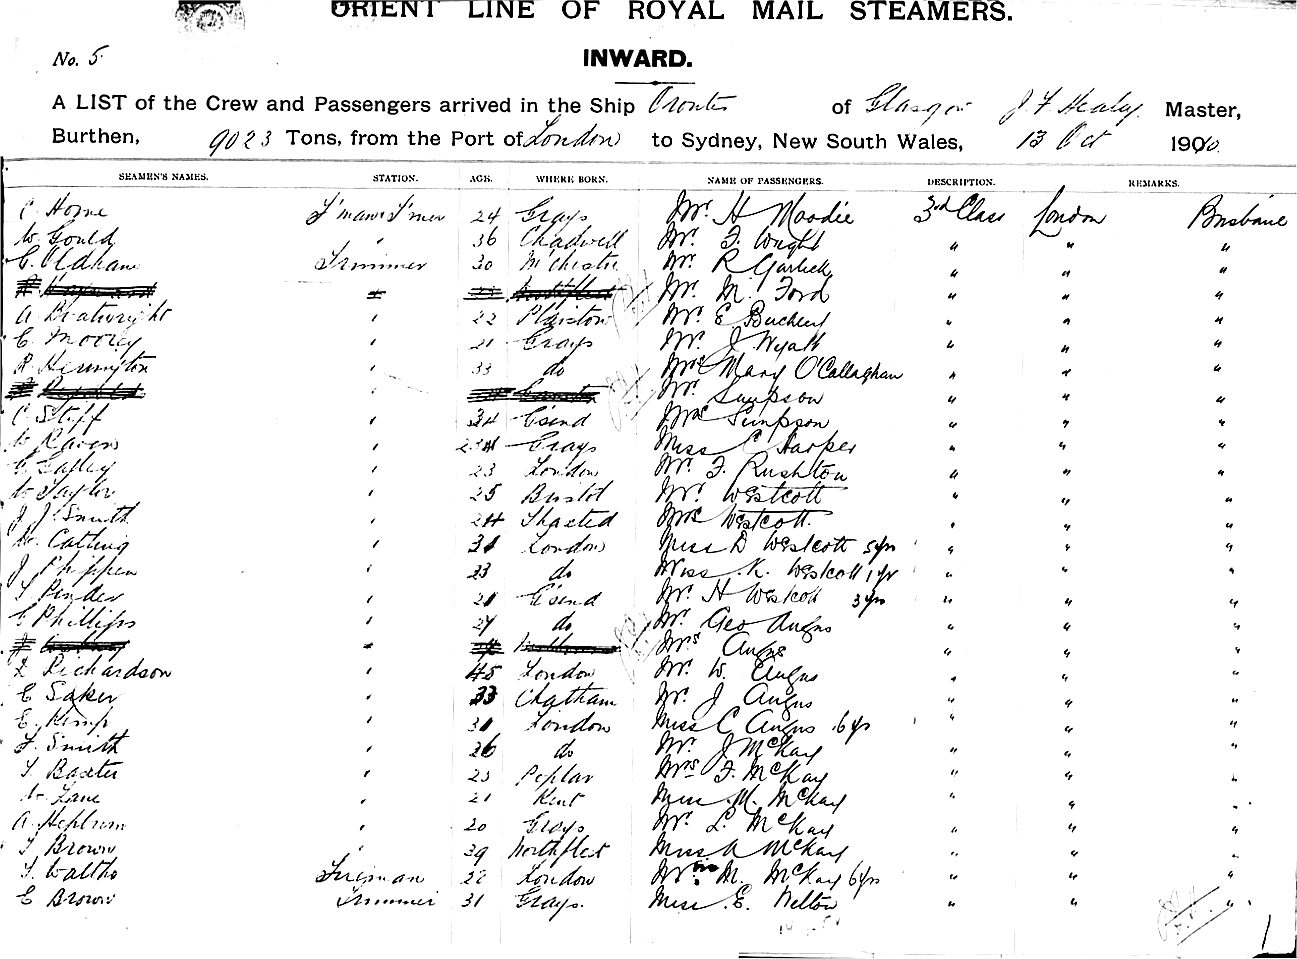 ORIENT LINE OF ROYAL MAIL STEAMERS.
No. 5
INWARD.
A LIST of the Crew and Passengers arrived in the Ship Orontes of Glasgow J F Healey Master,
Burthen, 9023 Tons, from the Port of London to Sydney, New South Wales, 13 Oct 1910.
SEAMEN'S NAMES. STATION. AGE. WHERE BORN. NAME OF PASSENGERS. DESCRIPTION. REMARKS.
C. Horne F'man & T'mer 24 Grays Mr. H Moodie 3rd Class London Brisbane
W Gould " 36 Chadwell Mr. F. Wright " " "
C. Oldham Trimmer 30 M'chester Mr. R Garlick " " "
Mr. M. Ford " " "
A Boatwright " 22 Plaistow Mr. E Buchert " " "
C. Moorey " 21 Grays Mr. J Wyatt " " "
R Herrington " 33 do Mrs Mary O'Callaghan " " "
" Mr. Simpson " " "
C Stiff " 34 G'send Mrs Simpson " " "
W Raven " Grays Miss C Harper " " "
G Gaffey " 23 London Mr. F. Rushton " " "
W Taylor " 25 Bristol Mr. Westcott " " "
J J Smith " 24 Thaxted Mrs Westcott. " " "
W. Catling " 31 London Miss D Westcott 5 yrs " " "
J Phippen " 23 do Miss K. Westcott 1 yr " " "
T Pinder " 21 G'send Mr. H Westcott 3 yrs " " "
C Phillips " 27 do Mr. Geo Angus " " "
Mrs Angus " " "
Z Richardson " 45 London Mr. W. Angus " " "
C Saker " 33 Chatham Mr. J Angus " " "
E. Kemp " 31 London Miss C Angus 6 yrs " " "
F. Smith " 26 do Mr. J McKay " " "
T Baxter " 23 Poplar Mrs F. McKay " " "
W Lane " 21 Kent Miss M. McKay " " "
A Hepburn " 20 Grays Mr. L. McKay " " "
T Brown " 39 Northfleet Miss A McKay " " "
T Waltho Fireman 22 London M. McKay 6 yrs " " "
E Brown Trimmer 31 Grays. Miss E. Welton " " "
1